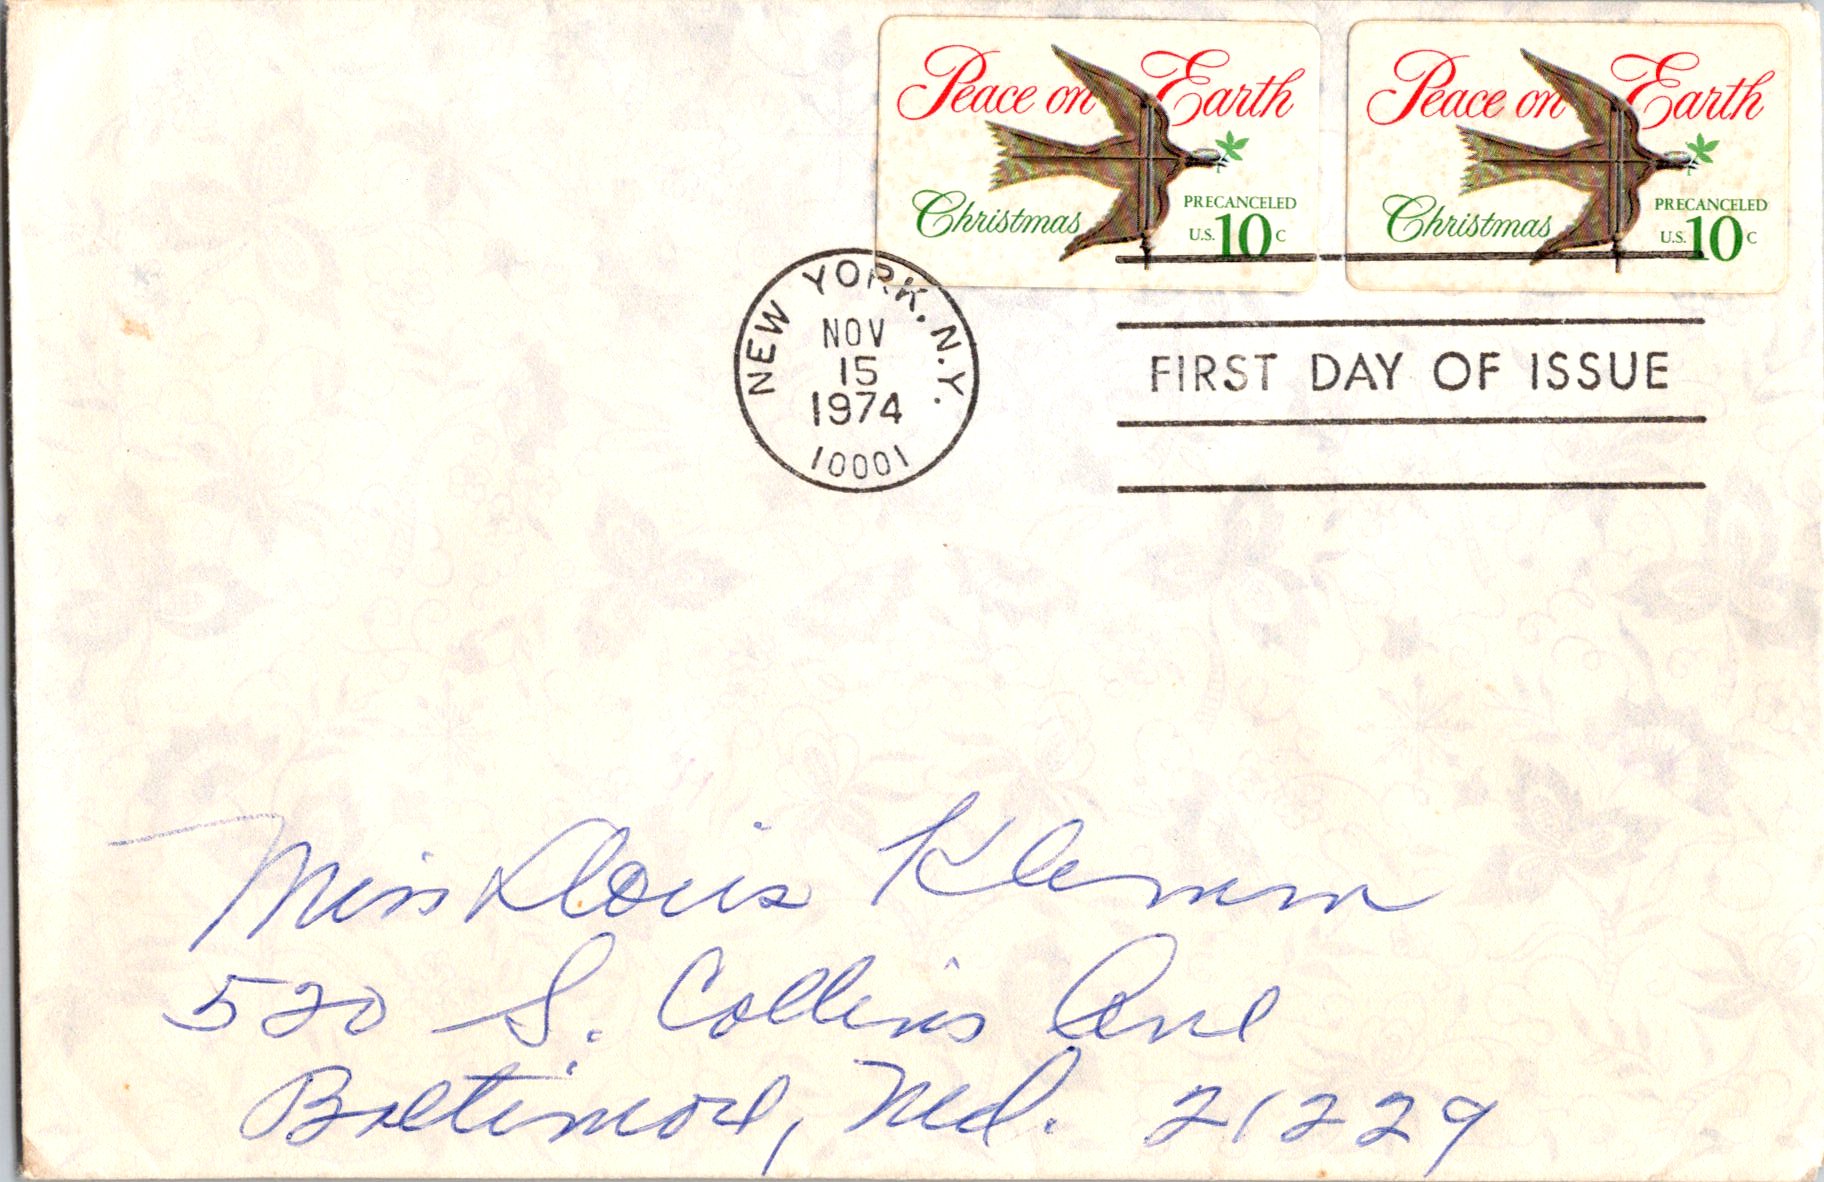 Peace on Earth
Christmas
PRECANCELED
U.S. 10 C
Peace on Earth
Christmas
PRECANCELED
U.S. 10 C
NEW YORK, N.Y.
NOV
15
1974
10001
FIRST DAY OF ISSUE
Miss Doris Klemm
520 S. Collins Ave
Baltimore, Md. 21229